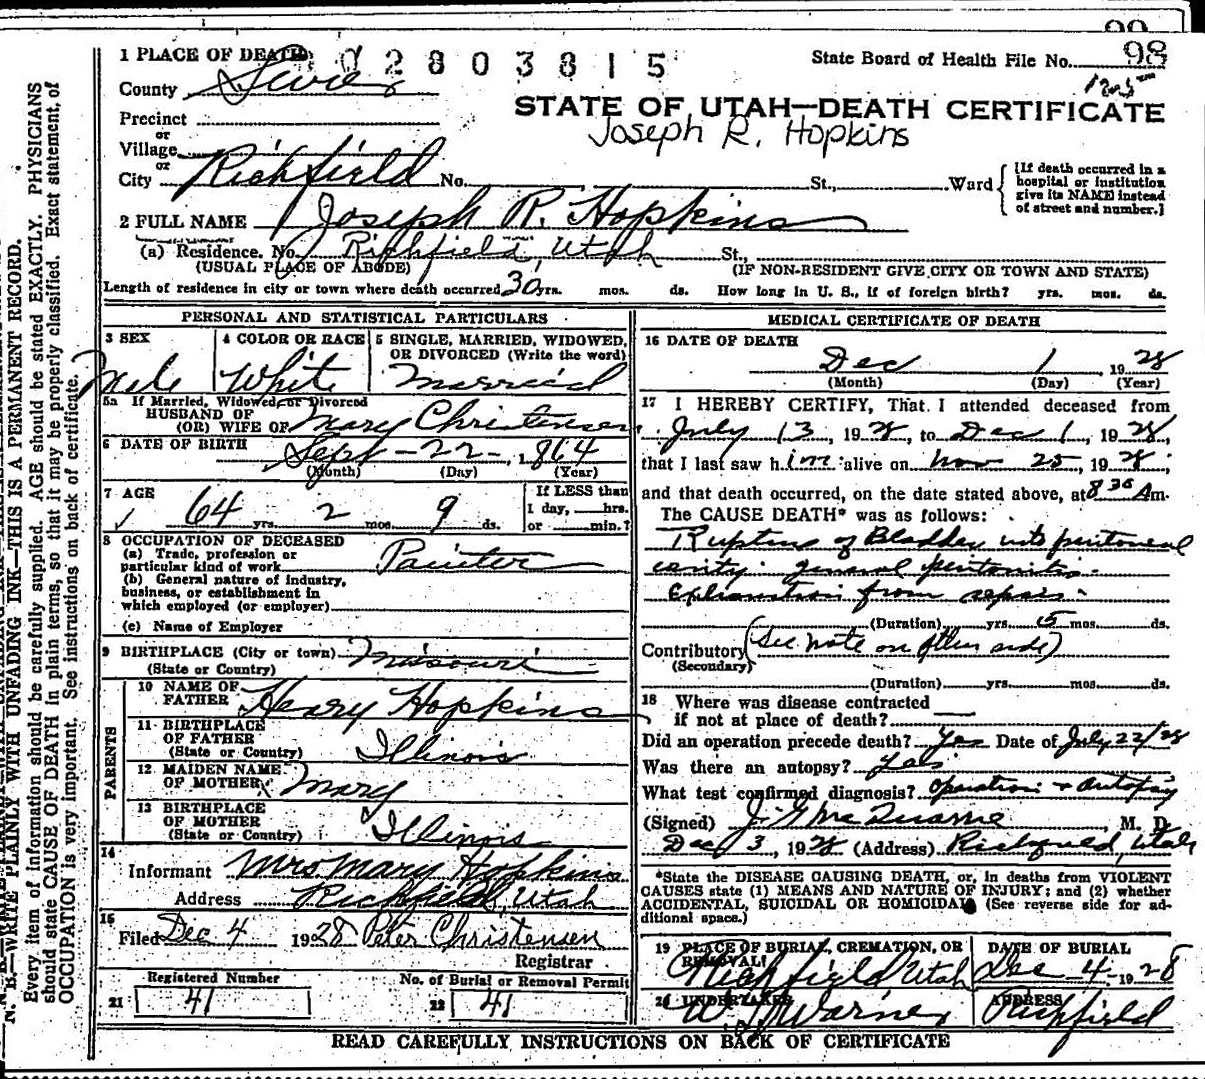 98
1 PLACE OF DEATH 002803815 State Board of Health File No. 98
County Sevier
STATE OF UTAH—DEATH CERTIFICATE
Precinct
Joseph R. Hopkins
or
Village
or
City Richfield No. St., Ward
[If death occurred in a
hospital or institution
give its NAME instead
of street and number.]
2 FULL NAME Joseph R. Hopkins
(a) Residence. No. Richfield, Utah St.,
(USUAL PLACE OF ABODE) (IF NON-RESIDENT GIVE CITY OR TOWN AND STATE)
Length of residence in city or town where death occurred 30 yrs. mos. ds. How long in U. S., if of foreign birth? yrs. mos. ds.
PERSONAL AND STATISTICAL PARTICULARS
3 SEX
Male
4 COLOR OR RACE
White
5 SINGLE, MARRIED, WIDOWED,
OR DIVORCED (Write the word)
Married
5a If Married, Widowed, or Divorced
HUSBAND OF
(OR) WIFE OF Mary Christensen
6 DATE OF BIRTH Sept - 22 -, 1864
(Month) (Day) (Year)
7 AGE
64 yrs. 2 mos. 9 ds.
If LESS than
1 day, hrs.
or min.?
8 OCCUPATION OF DECEASED
(a) Trade, profession or
particular kind of work Painter
(b) General nature of industry,
business, or establishment in
which employed (or employer)
(c) Name of Employer
9 BIRTHPLACE (City or town) Missouri
(State or Country)
PARENTS
10 NAME OF
FATHER Henry Hopkins
11 BIRTHPLACE
OF FATHER
(State or Country) Illinois
12 MAIDEN NAME
OF MOTHER Mary
13 BIRTHPLACE
OF MOTHER
(State or Country) Illinois
14
Informant Mrs Mary Hopkins
Address Richfield, Utah
15
Filed Dec 4 1928 Peter Christensen
Registrar
Registered Number
21 41
No. of Burial or Removal Permit
22 41
MEDICAL CERTIFICATE OF DEATH
16 DATE OF DEATH
Dec 1 1928
(Month) (Day) (Year)
17 I HEREBY CERTIFY, That I attended deceased from
July 13, 1928, to Dec 1, 1928,
that I last saw him alive on Nov 25, 1928;
and that death occurred, on the date stated above, at 8 30 Am.
The CAUSE DEATH* was as follows:
Rupture of Bladder into peritoneal
cavity. general peritonitis.
Exhaustion from sepsis.
(Duration) yrs. 5 mos. ds.
Contributory (See note on other side)
(Secondary)
(Duration) yrs. mos. ds.
18 Where was disease contracted
if not at place of death?
Did an operation precede death? Yes Date of July 22/28
Was there an autopsy? Yes
What test confirmed diagnosis? Operation + autopsy
(Signed) J. G. McQuarrie, M. D.
Dec 3, 1928 (Address) Richfield, Utah
*State the DISEASE CAUSING DEATH, or, in deaths from VIOLENT
CAUSES state (1) MEANS AND NATURE OF INJURY; and (2) whether
ACCIDENTAL, SUICIDAL OR HOMICIDAL (See reverse side for ad-
ditional space.)
19 PLACE OF BURIAL, CREMATION, OR
REMOVAL
Richfield Utah
DATE OF BURIAL
Dec 4 - 1928
UNDERTAKER
ADDRESS
Richfield
READ CAREFULLY INSTRUCTIONS ON BACK OF CERTIFICATE
B.—WRITE PLAINLY WITH UNFADING INK—THIS IS A PERMANENT RECORD.
Every item of information should be carefully supplied. AGE should be stated EXACTLY. PHYSICIANS
should state CAUSE OF DEATH in plain terms, so that it may be properly classified. Exact statement of
OCCUPATION is very important. See instructions on back of certificate.